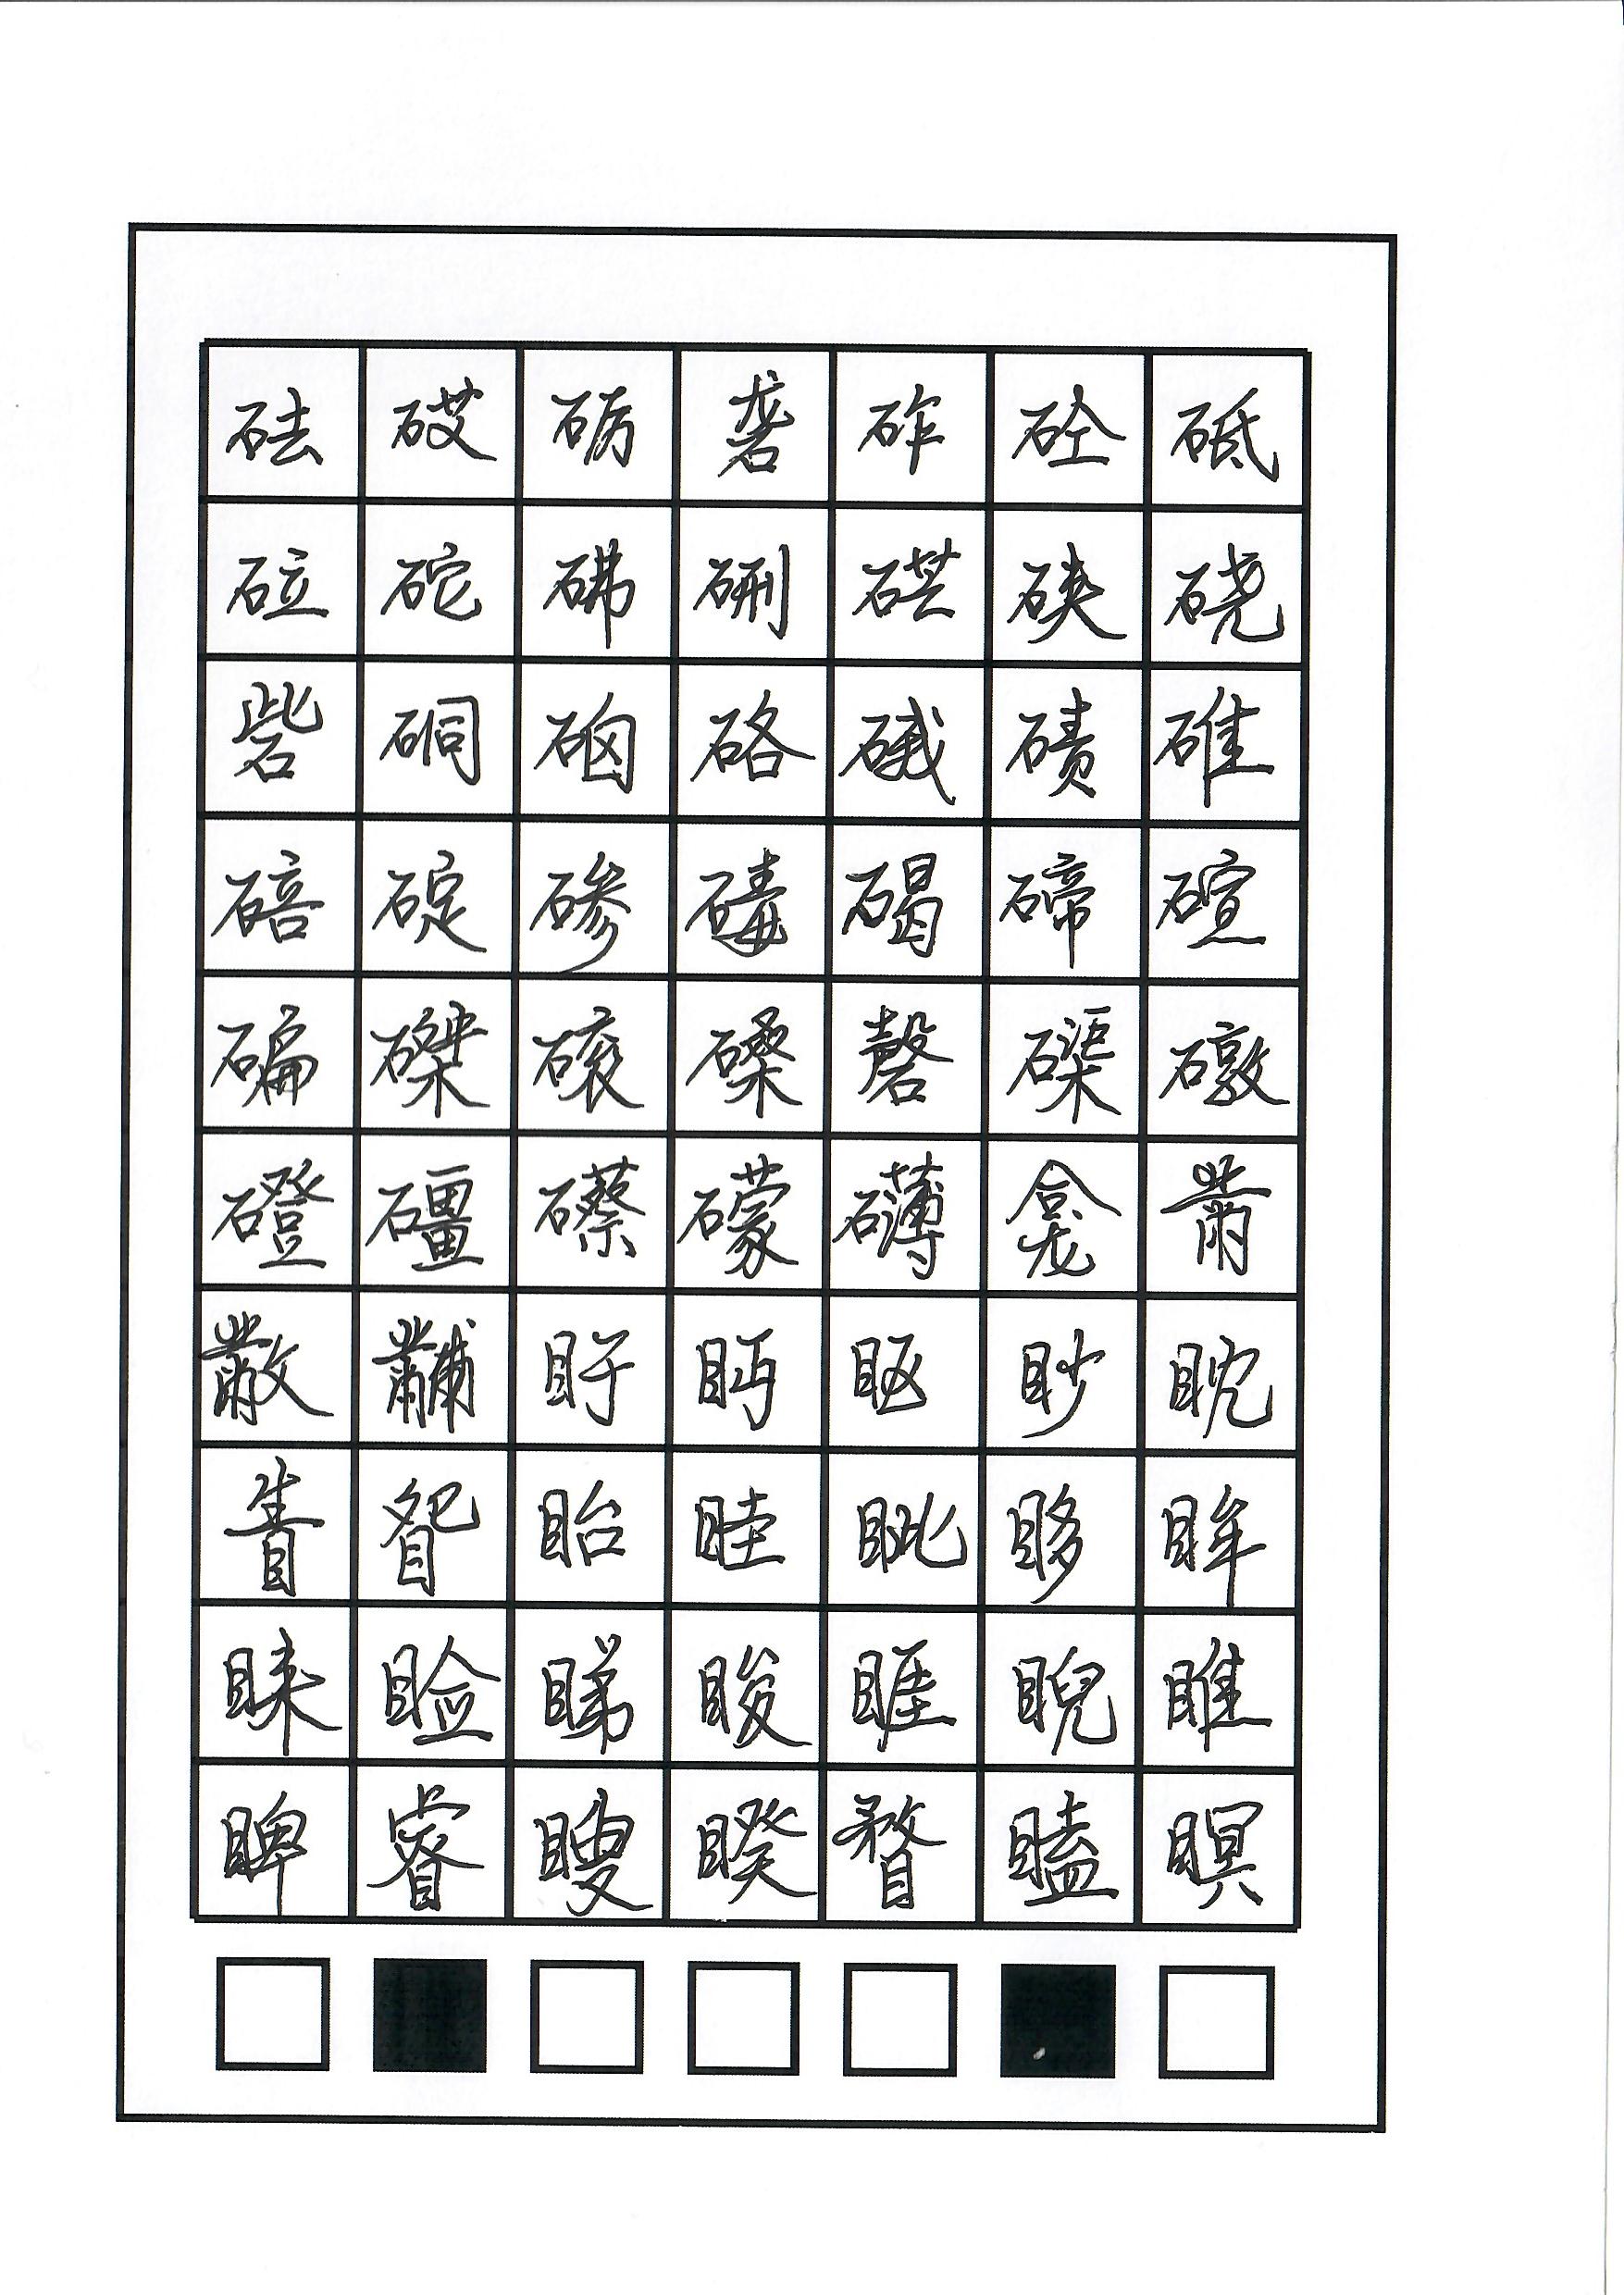 砝砹砺砻砟砼砥
砬砣砩硎硭硖硗
砦硐硇硌硪碛碓
碚碇碜碡碣碲碹
碥磔磙磉磬磲礅
磴礓礤礞礴龛黹
黻黼盱眄眍眇眈
眚眢眙眭眦眵眸
睐睑睇睃睚睨睢
睥睿瞍睽瞀瞌瞑